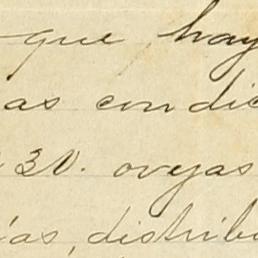 que hay
as condic
30. ovejas
ías, distribu